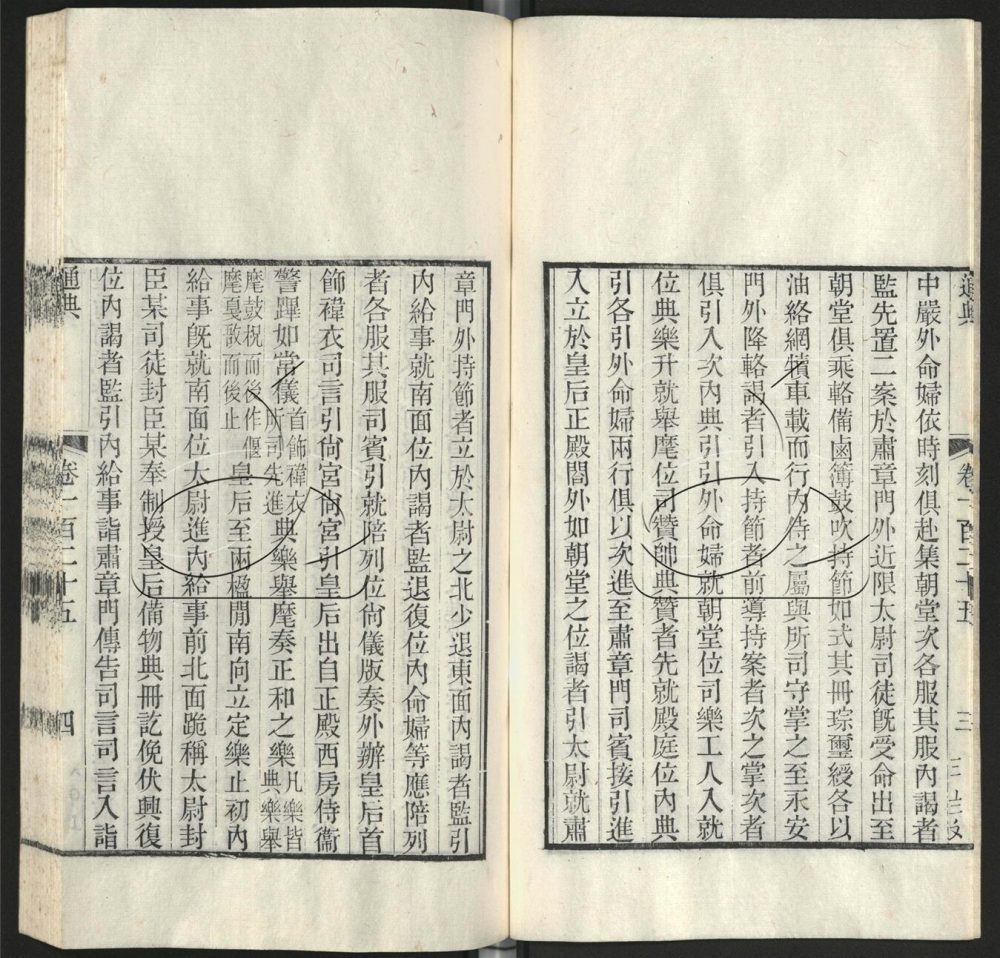 通典
卷一百二十五
三
中嚴外命婦依時刻俱赴集朝堂次各服其服內謁者
監先置二案於肅章門外近限太尉司徒既受命出至
朝堂俱乘輅備鹵簿鼓吹持節如式其冊琮璽綬各以
油絡網犢車載而行內侍之屬與所司守掌之至永安
門外降輅謁者引入持節者前導持案者次之掌次者
俱引入次內典引引外命婦就朝堂位司樂工人入就
位典樂升就舉麾位司贊帥典贊者先就殿庭位內典
引各引外命婦兩行俱以次進至肅章門司賓接引進
入立於皇后正殿閤外如朝堂之位謁者引太尉就肅
章門外持節者立於太尉之北少退東面內謁者監引
內給事就南面位內謁者監退復位內命婦等應陪列
者各服其服司賓引就陪列位尚儀版奏外辦皇后首
飾褘衣司言引尚宮尚宮引皇后出自正殿西房侍衞
警蹕如常儀首飾褘衣所司先進典樂舉麾奏正和之樂凡樂皆典樂舉
麾鼓柷而後作偃麾戛敔而後止皇后至兩楹閒南向立定樂止初內
給事既就南面位太尉進內給事前北面跪稱太尉封
臣某司徒封臣某奉制授皇后備物典冊訖俛伏興復
位內謁者監引內給事詣肅章門傳告司言司言入詣
通典
卷一百二十五
四